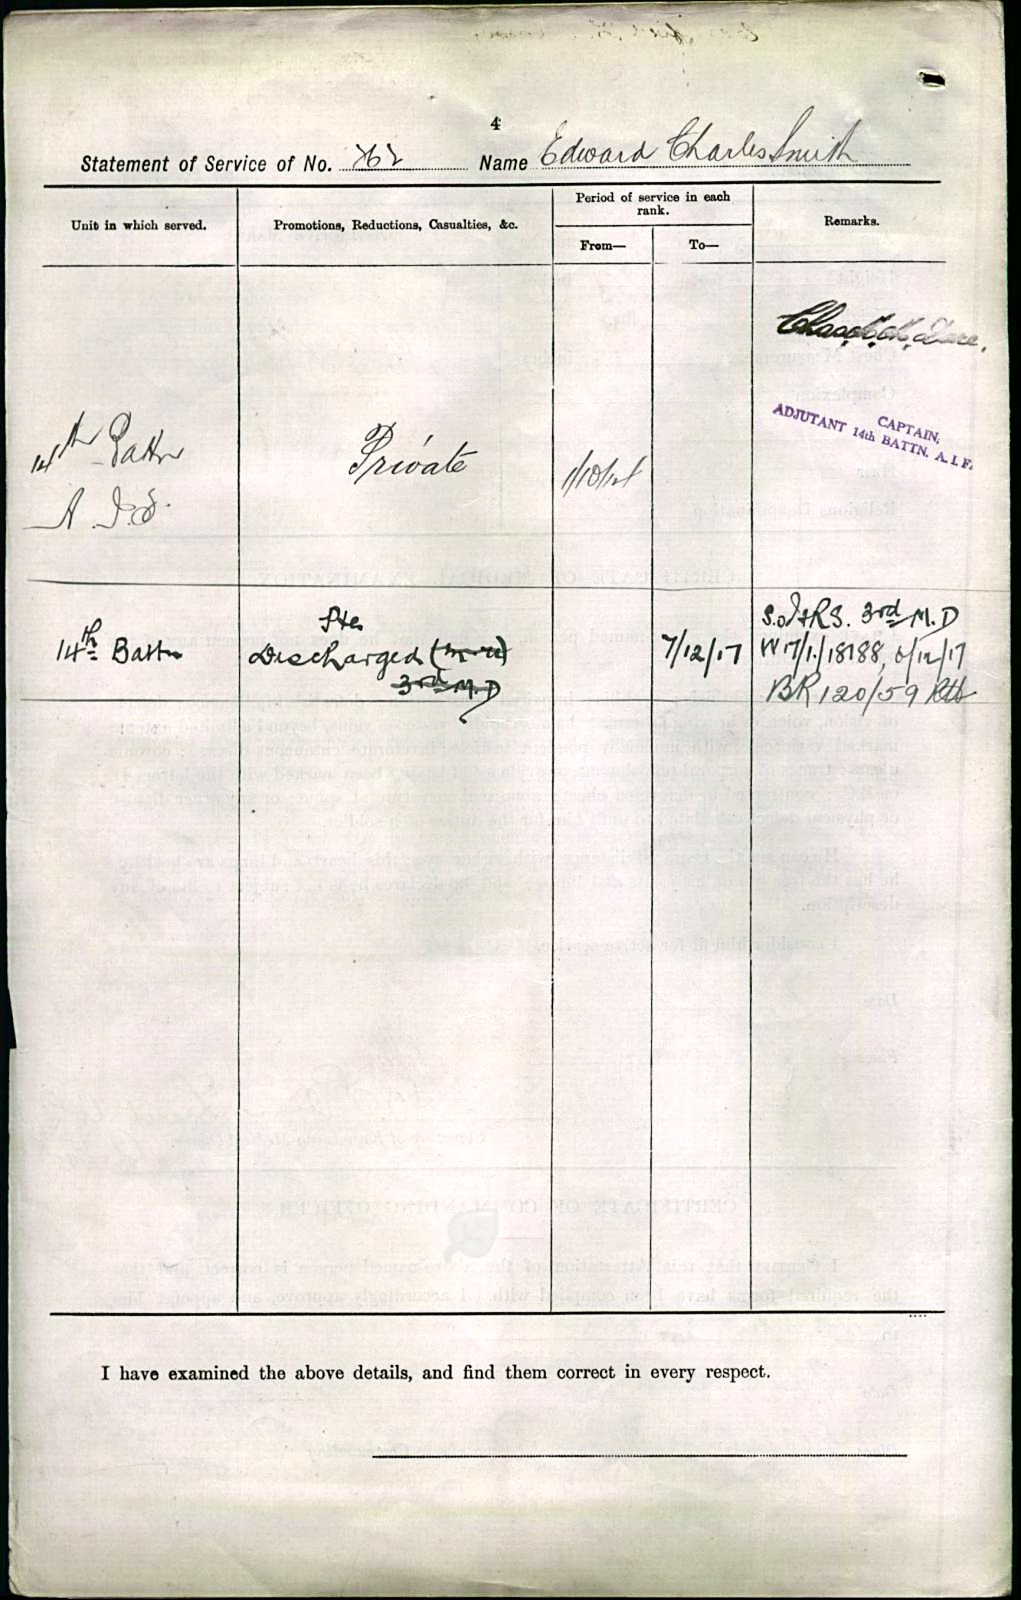 4
Statement of Service of No. 762 Name Edward Charles Smith
Unit in which served. Promotions, Reductions, Casualties, &c. Period of service in each rank. From— To— Remarks.
Chas. M. M. Dare.
CAPTAIN,
ADJUTANT 14th BATTN. A.I.F.
14th Battn Private 1/10/14
A.I.F.
Pte S.O.I&RS. 3rd M.D
14th Battn Discharged 7/12/17 W17/1/18188,
3rd M.D BR120/59
I have examined the above details, and find them correct in every respect.